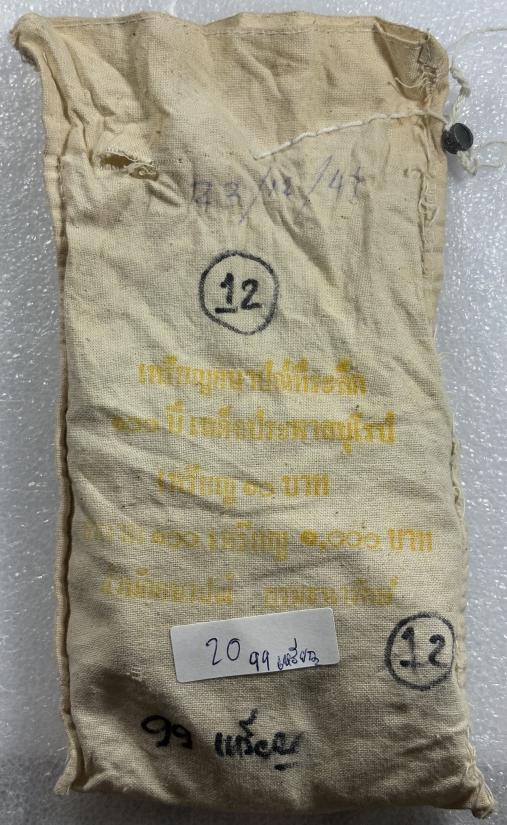 12
เหรียญกษาปณ์ที่ระลึก
๑๐๐ ปี เสด็จประพาสยุโรป
เหรียญ ๑๐ บาท
จำนวน ๑๐๐ เหรียญ ๑,๐๐๐ บาท
กรมธนารักษ์
20 99 เหรียญ
12
99 เหรียญ